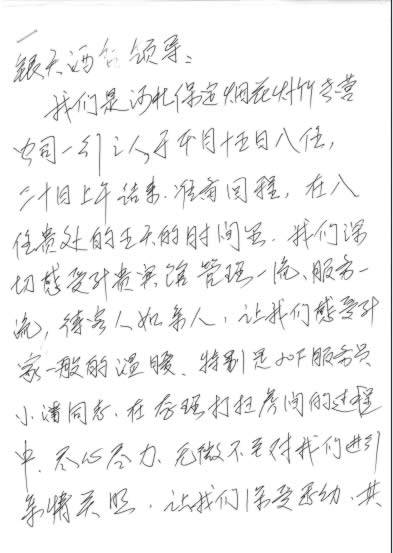 银天酒店领导：
我们是河北保定烟花爆竹专营
公司一行2人于本月十五日入住，
二十日上午结束.准备回程，在入
住贵处的五天的时间里.我们深
切感受到贵宾馆管理一流、服务一
流，待客人如亲人，让我们感受到
家一般的温暖、特别是20F服务员
小潘同志、在整理打扫房间的过程
中、尽心尽力、无微不至对我们进行
亲情关照，让我们深受感动、其